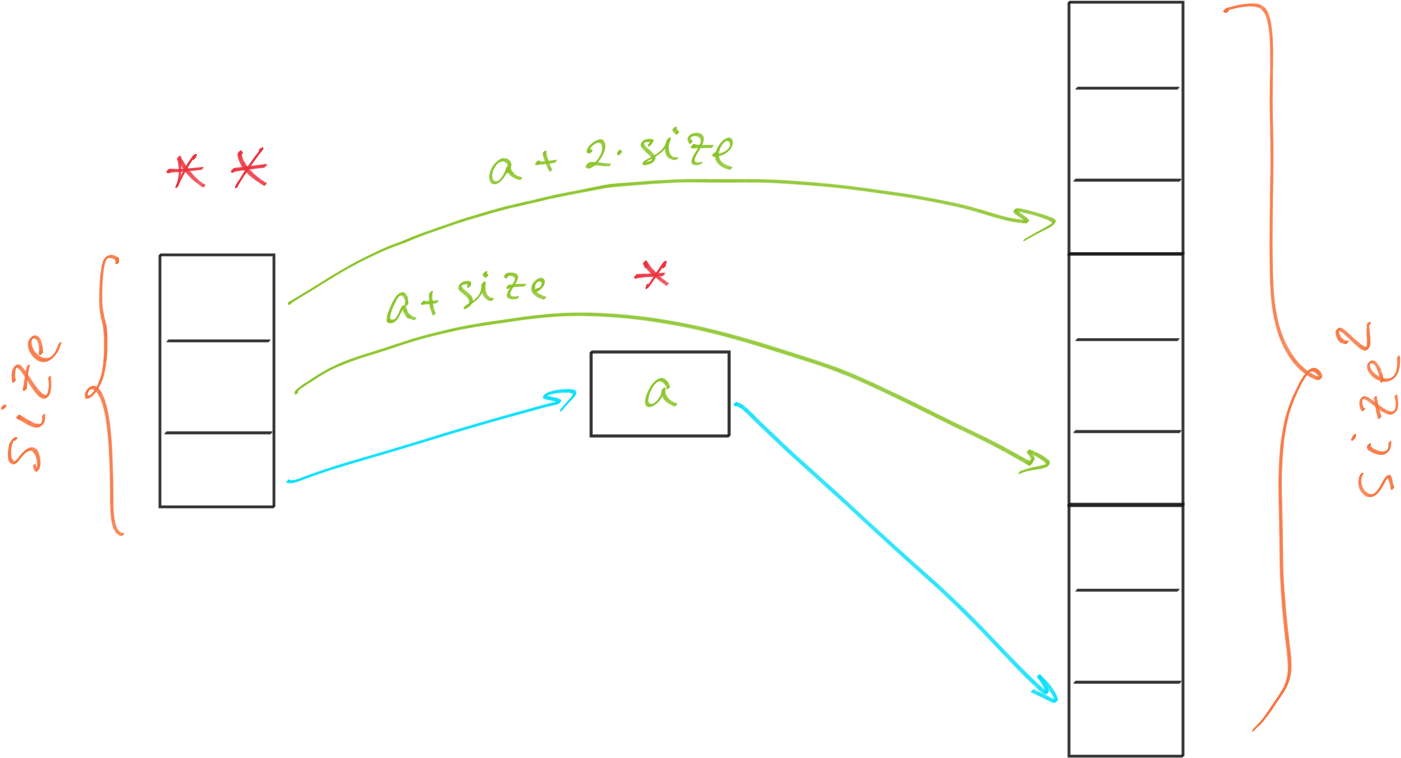 * *
a + 2 · size
a + size
*
a
size
size²